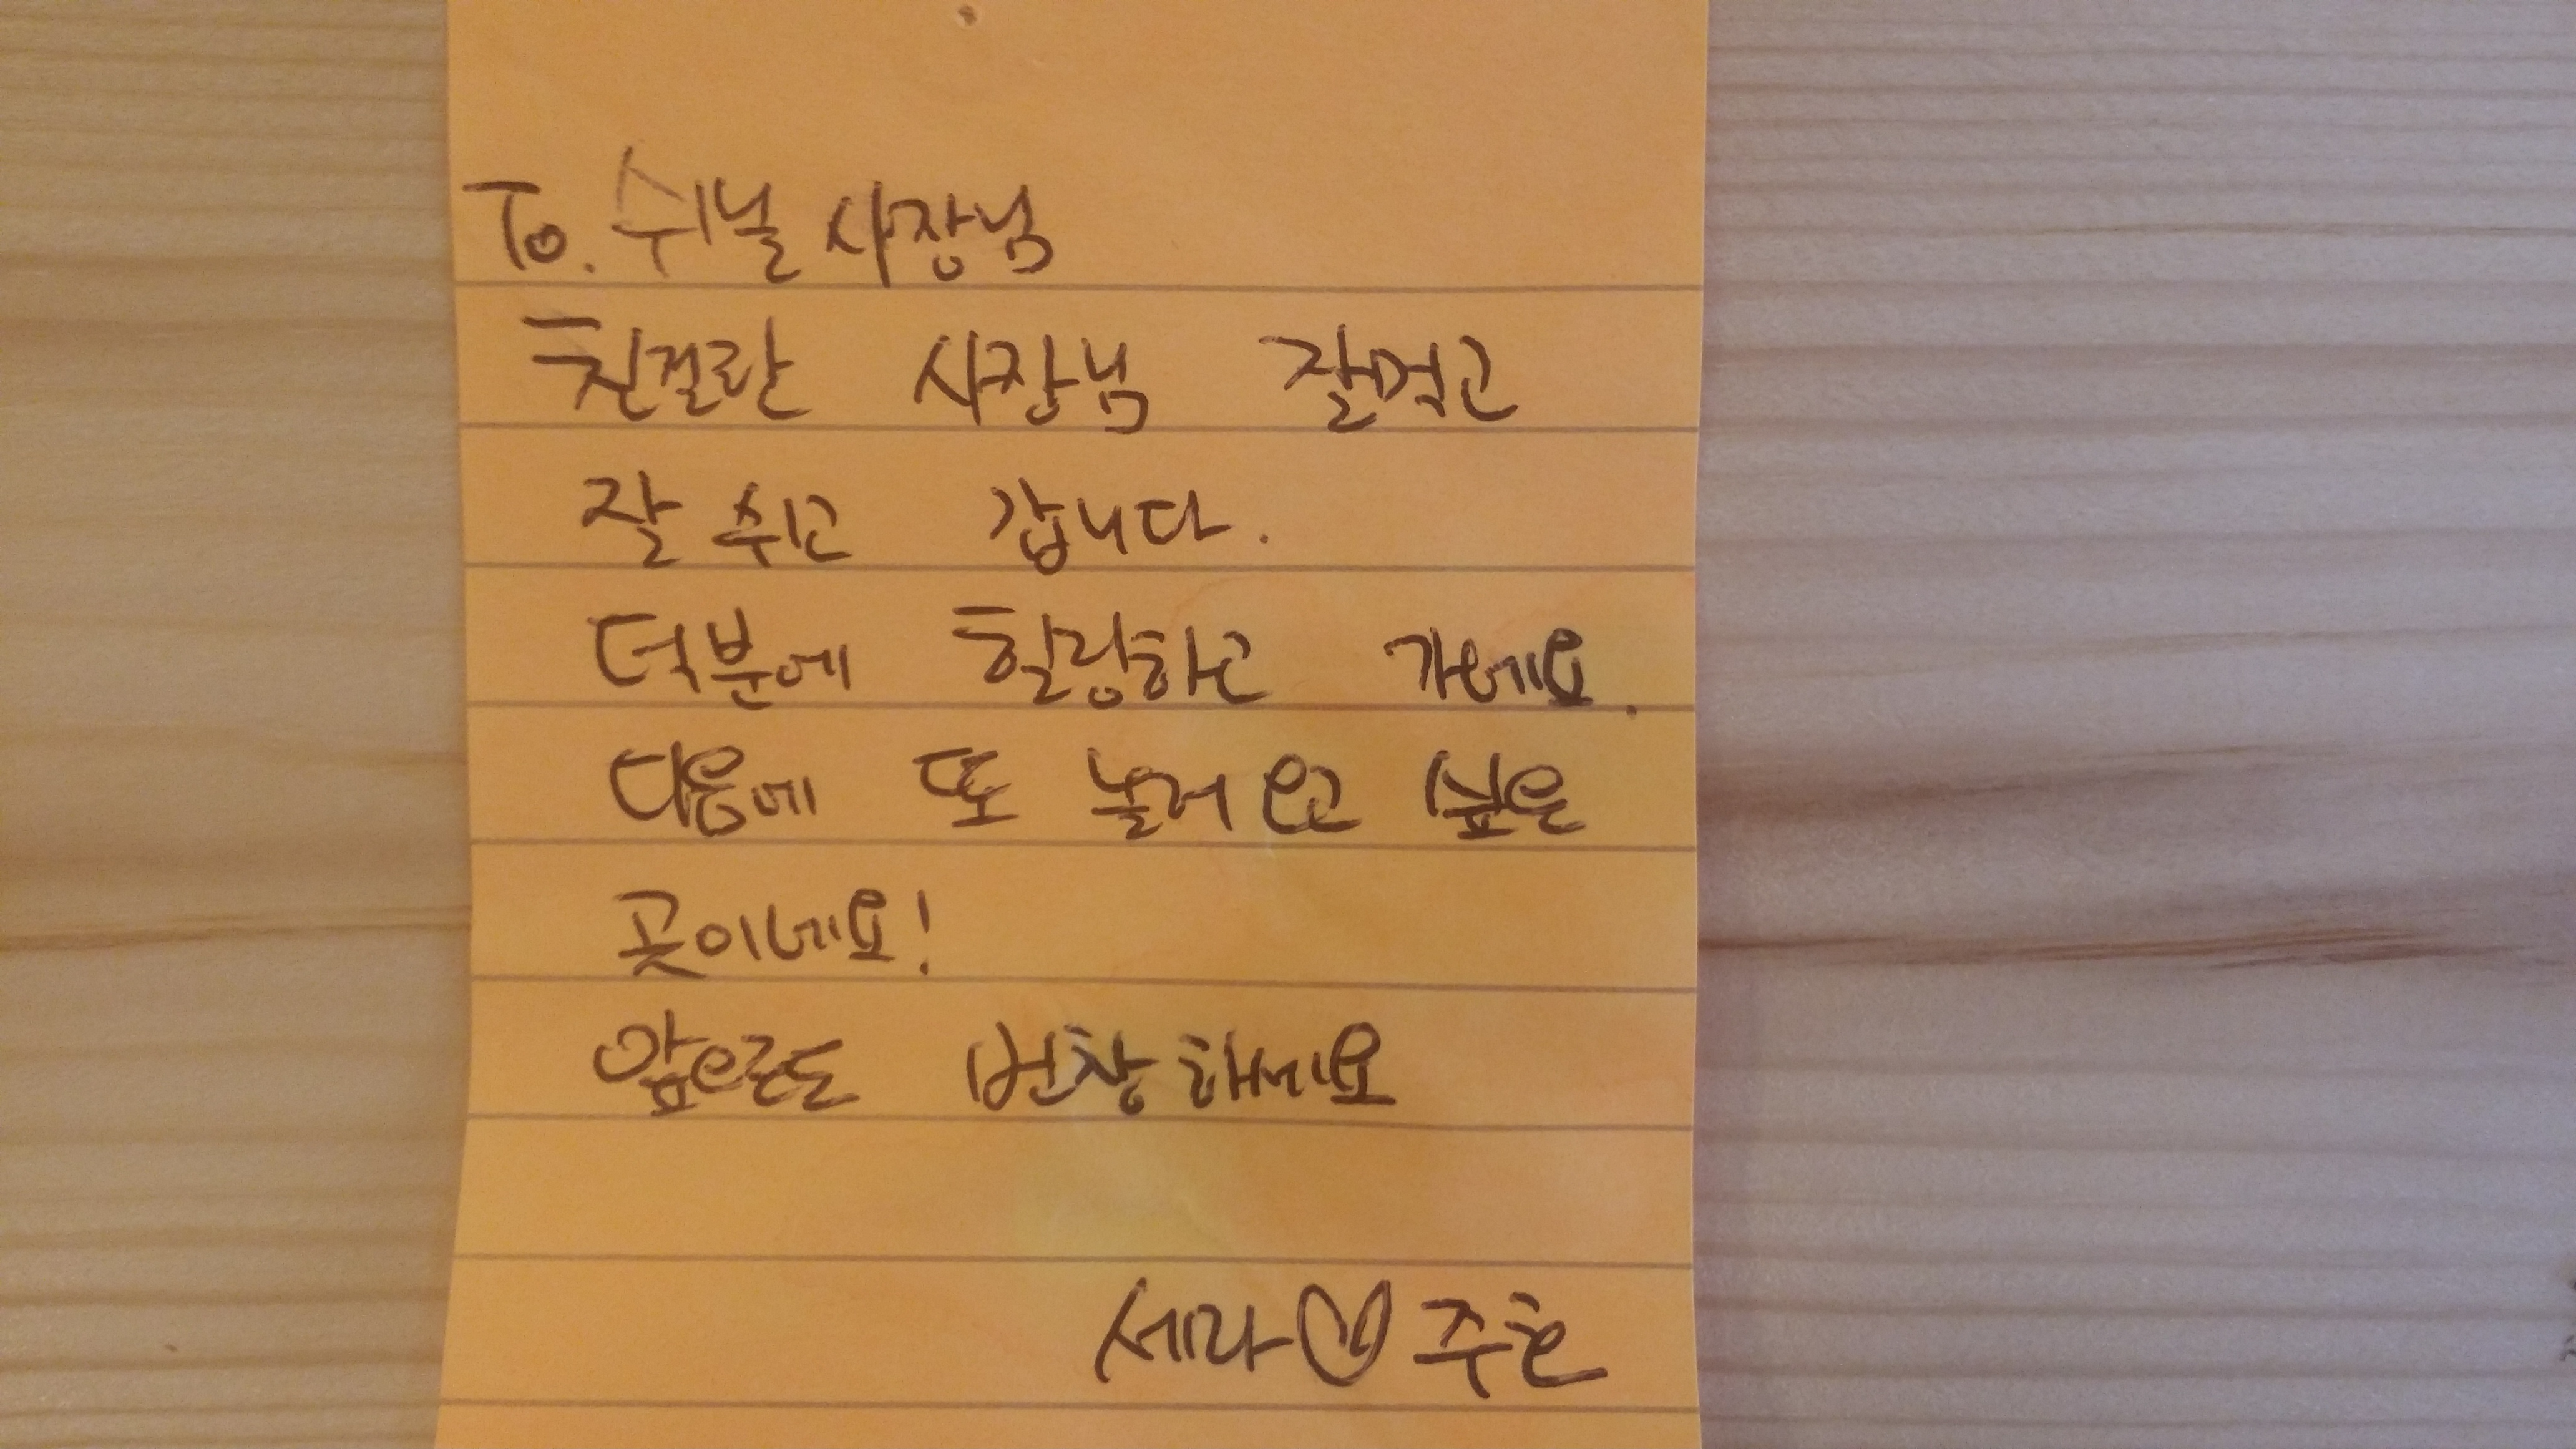 To. 쉬닐 사장님
친절한 사장님 잘먹고
잘 쉬고 갑니다.
덕분에 힐링하고 가네요.
다음에 또 놀러 오고 싶은
곳이네요!
앞으로도 번창하세요
세라♡주호